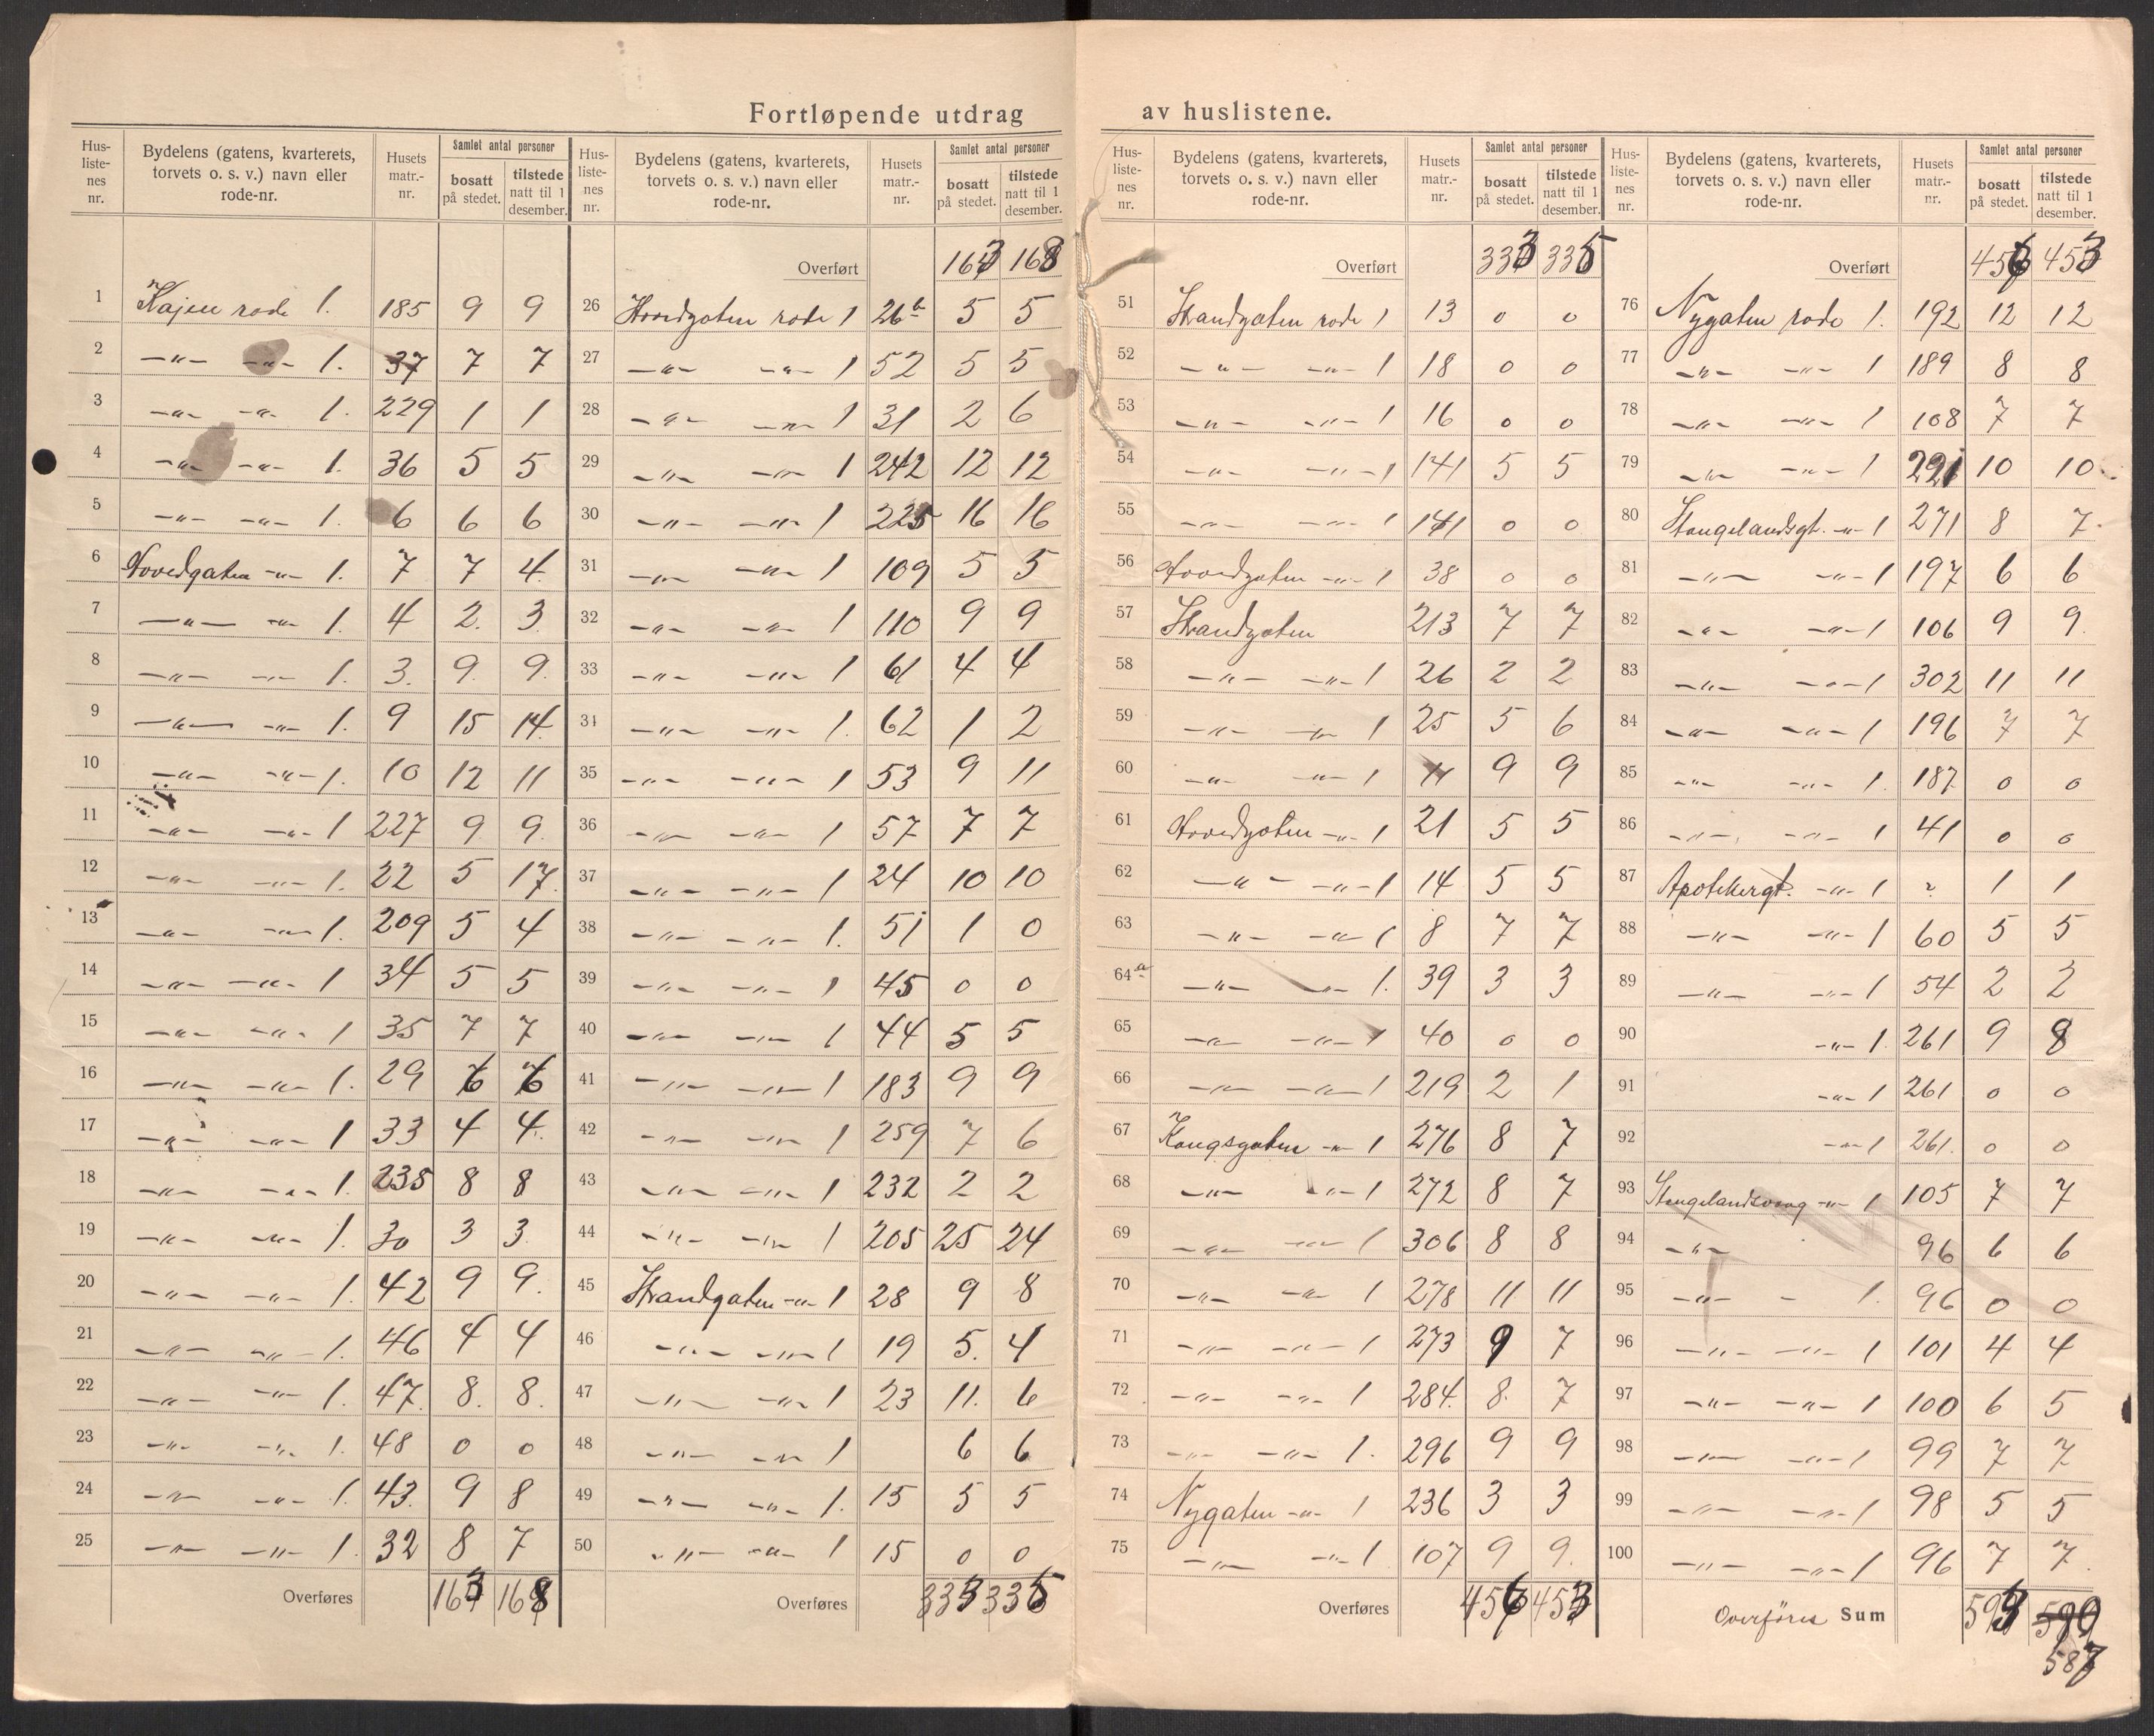 Fortløpende utdrag av huslistene.
Hus-liste-nes nr. | Bydelens (gatens, kvarterets, torvets o. s. v.) navn eller rode-nr. | Husets matr.-nr. | Samlet antal personer bosatt på stedet. | tilstede natt til 1 desember.
1 Kajen rode 1. 185 9 9
2 -"- -"- 1. 37 7 7
3 -"- -"- 1. 229 1 1
4 -"- -"- 1. 36 5 5
5 -"- -"- 1. 6 6 6
6 Hovedgaten -"- 1. 7 7 4
7 -"- -"- 1. 4 2. 3
8 -"- -"- 1. 3. 9. 9.
9 -"- -"- 1. 9 15 14.
10 -"- -"- 1. 10 12 11
11 -"- -"- 1 227 9 9.
12 -"- -"- 1. 22 5 17.
13 -"- -"- 1. 209 5 4
14 -"- -"- 1 34 5 5
15 -"- -"- 1 35 7 7
16 -"- -"- 1. 29
17 -"- -"- 1 33 4 4.
18 -"- -"- 1. 235 8 8
19 -"- -"- 1. 30 3 3.
20 -"- -"- 1. 42 9 9.
21 -"- -"- 1. 46 4 4
22 -"- -"- 1. 47. 8. 8.
23 -"- -"- 1. 48 0 0
24 -"- -"- 1. 43. 9 8
25 -"- -"- 1. 32 8 7
Overføres 163 168
Hus-liste-nes nr. | Bydelens (gatens, kvarterets, torvets o. s. v.) navn eller rode-nr. | Husets matr.-nr. | Samlet antal personer bosatt på stedet. | tilstede natt til 1 desember.
Overført 163 168
26 Hovedgaten rode 1 26b 5 5
27 -"- -"- 1 52 5 5
28 -"- -"- 1 31 2 6
29 -"- -"- 1 242 12 12
30 -"- -"- 1 225 16 16
31 -"- -"- 1 109 5 5
32 -"- -"- 1 110 9 9
33 -"- -"- 1 61 4 4
34 -"- -"- 1. 62 1 2
35 -"- -"- 1 53 9 11
36 -"- -"- 1 57 7 7
37 -"- -"- 1 24 10 10
38 -"- -"- 1. 51 1 0
39 -"- -"- 1 45 0 0
40 -"- -"- 1 44 5 5
41 -"- -"- 1 183 9 9
42 -"- -"- 1 259 7 6
43 -"- -"- 1 232 2 2
44 -"- -"- 1 205 25 24
45 Strandgaten -"- 1 28 9 8
46 -"- -"- 1 19 5. 4
47 -"- -"- 1 23 11. 6
48 -"- -"- 1 6 6
49 -"- -"- 1. 15 5 5
50 -"- -"- 1 15 0 0
Overføres 333 335
Hus-liste-nes nr. | Bydelens (gatens, kvarterets, torvets o. s. v.) navn eller rode-nr. | Husets matr.-nr. | Samlet antal personer bosatt på stedet. | tilstede natt til 1 desember.
Overført 333 335
51 Strandgaten rode 1 13 0 0
52 -"- -"- 1 18 0 0
53 -"- -"- 1 16 0 0
54 -"- -"- 1 141 5 5
55 -"- -"- 1 141 0 0
56 Hovedgaten -"- 1 38 0 0
57 Strandgaten 213 7 7
58 -"- -"- 1 26 2 2
59 -"- -"- 1 25 5 6
60 -"- -"- 1 9 9
61 Hovedgaten -"- 1 21 5 5
62 -"- -"- 1 14 5 5
63 -"- -"- 1 8 7 7
64a -"- -"- 1. 39 3 3
65 -"- -"- 1 40 0 0
66 -"- -"- 1 219 2 1
67 Kongsgaten -"- 1 276 8 7
68 -"- -"- 1 272 8 7
69 -"- -"- 1 306 8 8
70 -"- -"- 1 278 11 11
71 -"- -"- 1 273 9 7
72 -"- -"- 1 284. 8. 7
73 -"- -"- 1. 296 9 9
74 Nygaten -"- 1 236 3 3
75 -"- -"- 1. 107 9 9.
Overføres 456 453
Hus-liste-nes nr. | Bydelens (gatens, kvarterets, torvets o. s. v.) navn eller rode-nr. | Husets matr.-nr. | Samlet antal personer bosatt på stedet. | tilstede natt til 1 desember.
Overført 456 453
76 Nygaten rode 1. 192 12 12
77 -"- -"- 1 189 8 8
78 -"- -"- 1 108 7 7
79 -"- -"- 1 291 10 10
80 Stangelandsgt. -"- 1 271 8 7
81 -"- -"- 1 197 6 6
82 -"- -"- 1 106 9 9.
83 -"- -"- 1 302 11 11
84 -"- -"- 1 196 7 7
85 -"- -"- 1. 187. 0 0
86 -"- -"- 1 41 0 0
87 Apotekergt. -"- 1 ? 1 1
88 -"- -"- 1 60 5 5
89 -"- -"- 1 54 2 2
90 -"- 1. 261 9 8
91 -"- 1 261 0 0
92 -"- 1 261. 0 0
93 Stangelandsvag -"- 1 105 7 7
94 -"- 96 6 6
95 -"- - 1. 96 0 0
96 -"- -"- 1 101 4 4
97 -"- -"- 1 100 6 5
98 -"- -"- 1 99 7 7
99 -"- -"- 1 98 5 5
100 -"- -"- 1 96 7 7.
Overføres Sum 593 590
587